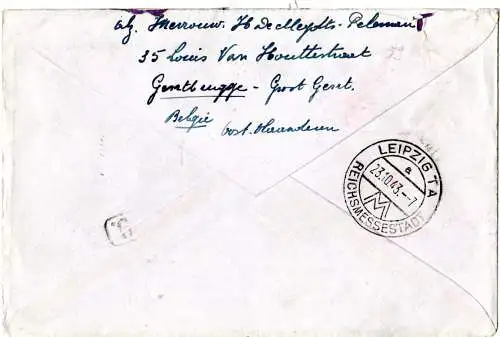 afz. Mevrouw. H De Meyts - Peleman
35 Louis Van Houttestraat
Gentbrugge - Groot Gent.
België
Oost Vlaanderen
LEIPZIG TA
a
23.10.43.-7
M
REICHSMESSESTADT